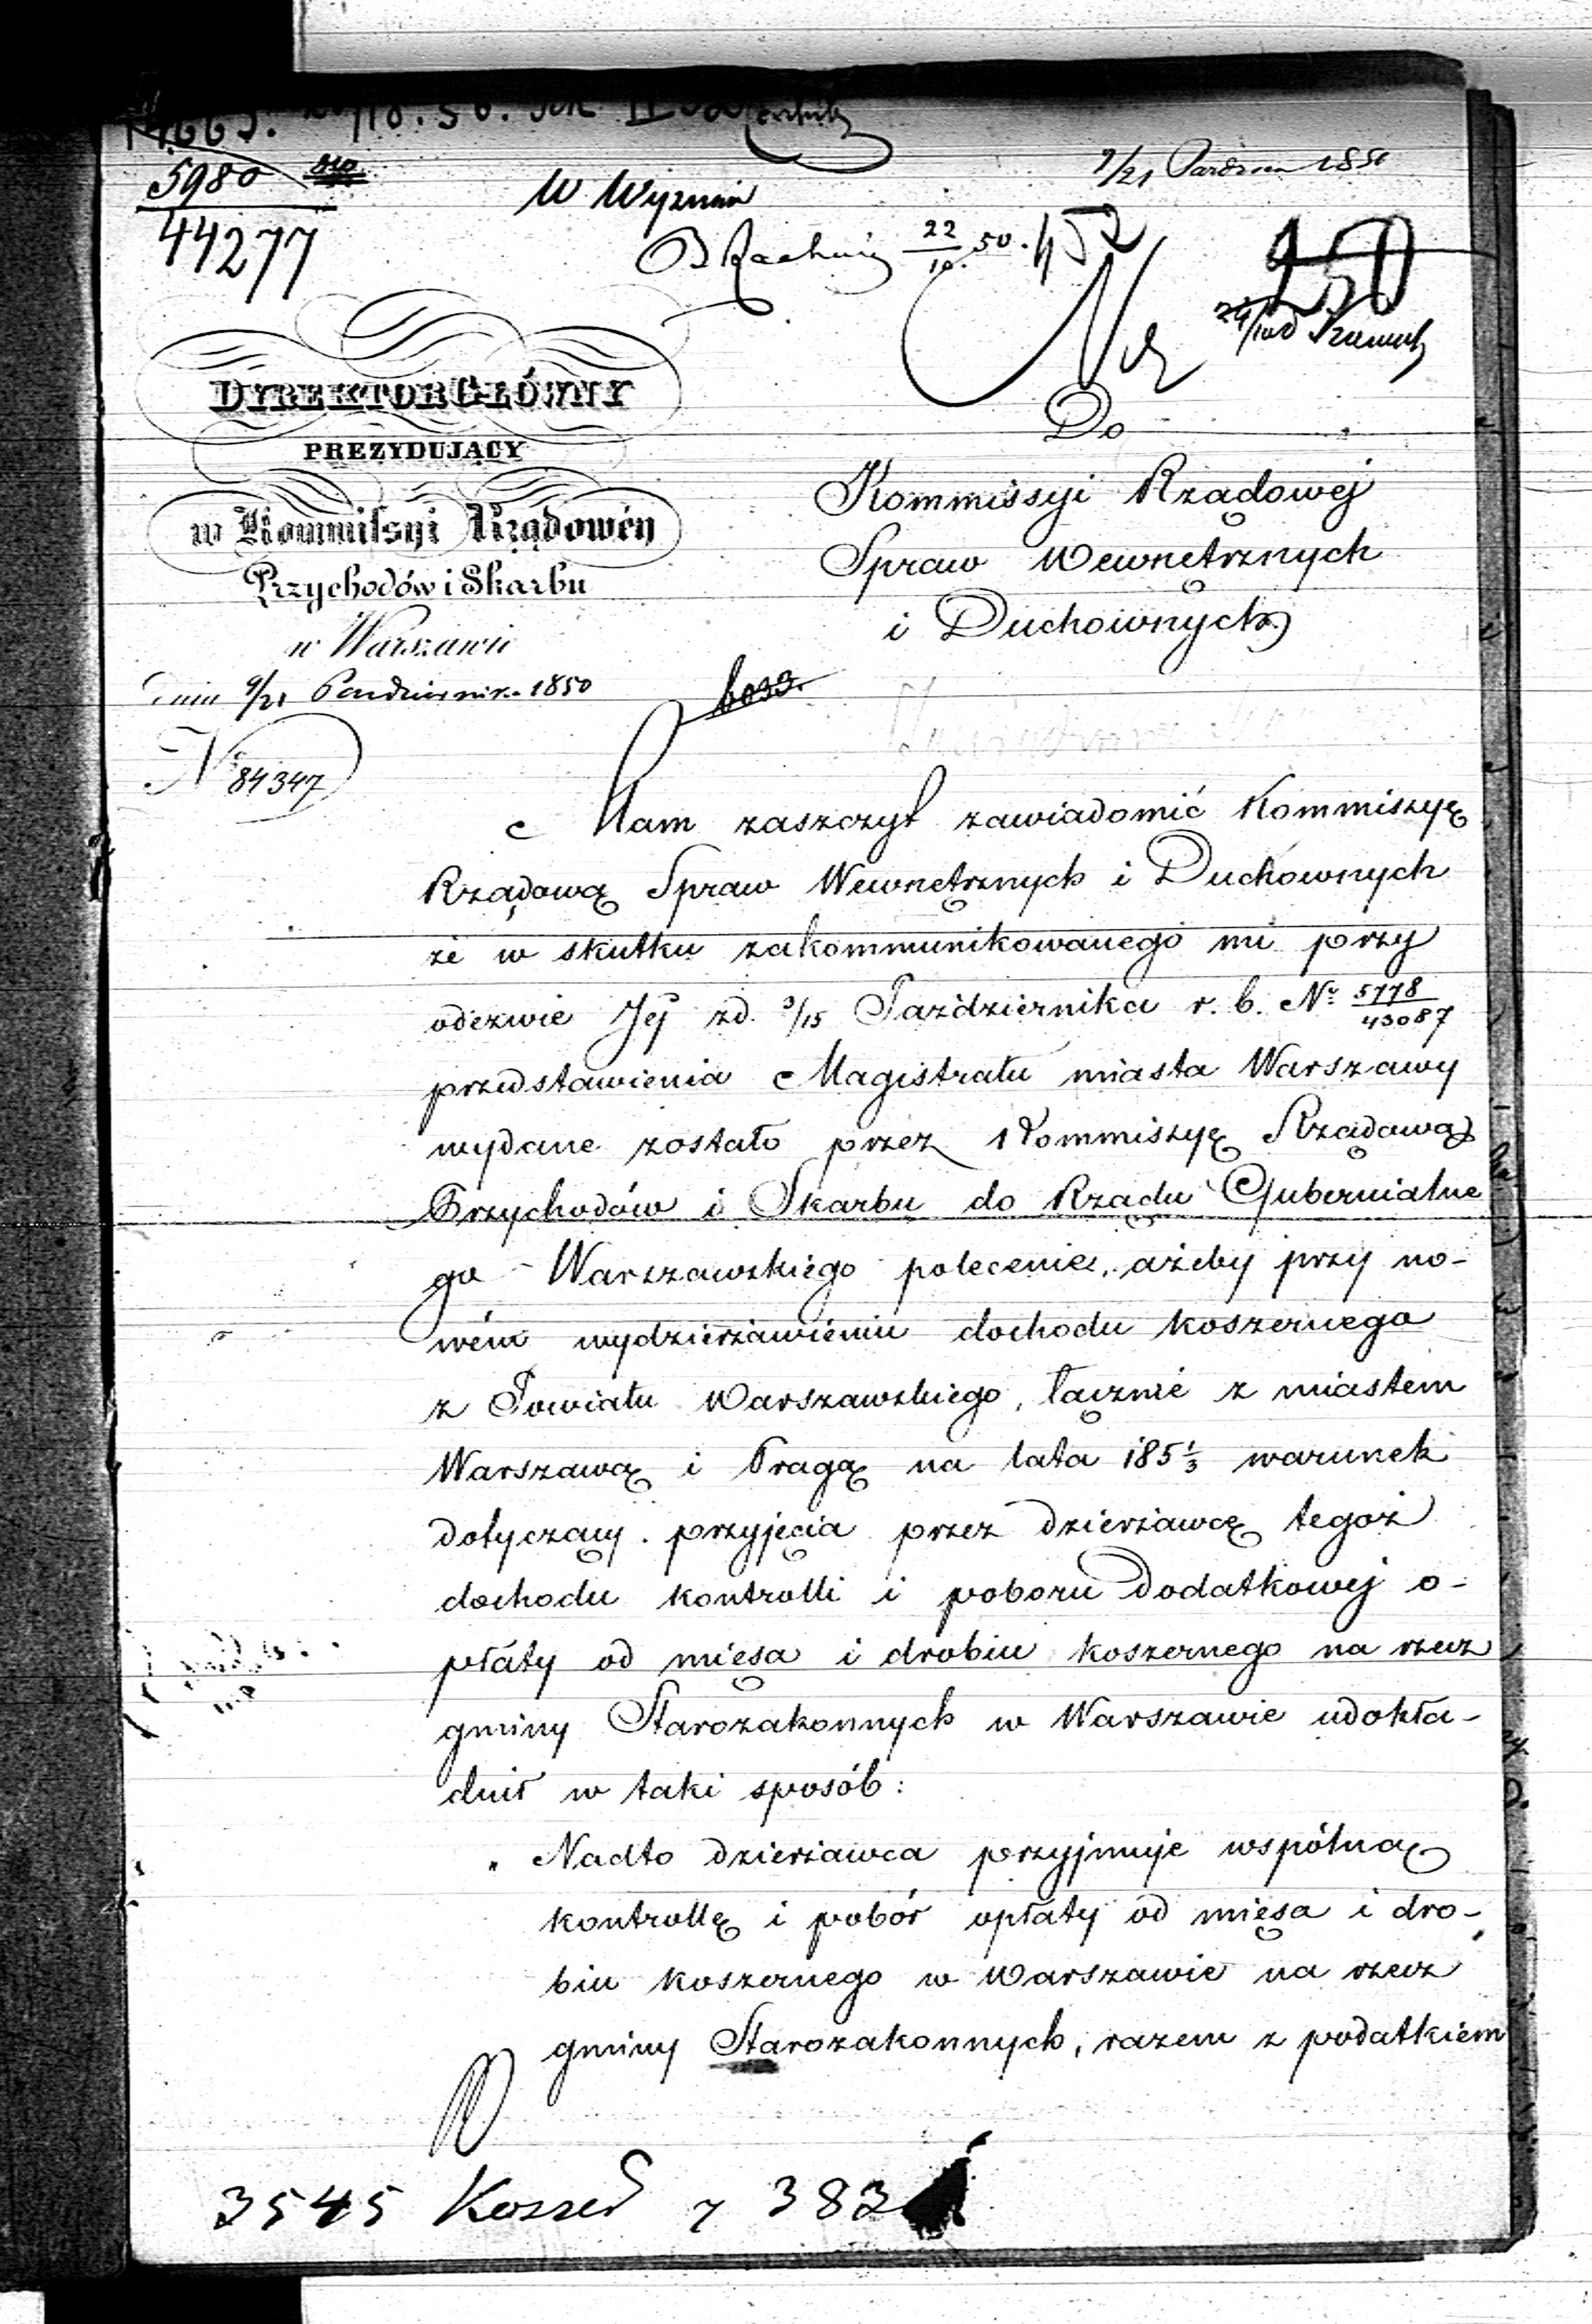 5980
44277
W Wyznań
22/10 50.
9/21 Paździer 1850
DYREKTOR GŁÓWNY
PREZYDUJĄCY
w Kommissyi Rządowéy
Przychodów i Skarbu
w Warszawie
dnia 9/21 Październik. 1850
Nr 84347
Do
Kommissyi Rządowej
Spraw Wewnętrznych
i Duchownych
Mam zaszczyt zawiadomić Kommiszyę
Rządową Spraw Wewnętrznych i Duchownych
że w skutku zakommunikowanego mi przy
odezwie Jej z d. 3/15 Października r. b. Nr 5778/43087
przedstawienia Magistratu miasta Warszawy
wydane zostało przez Kommiszyę Rządową
Przychodów i Skarbu do Rządu Gubernialne
go Warszawskiego polecenie, ażeby przy no-
wém wydzierżawieniu dochodu koszernego
z Powiatu Warszawskiego, łącznie z miastem
Warszawą i Pragą na lata 185 1/3 warunek
dotyczący przyjęcia przez dzierżawcę tegoż
dochodu kontrolli i poboru dodatkowej o-
płaty od mięsa i drobiu koszernego na rzecz
gminy Starozakonnych w Warszawie udokła-
dnił w taki sposób:
„ Nadto dzierżawca przyjmuje wspólną
kontrollę i pobór opłaty od mięsa i dro-
biu koszernego w Warszawie na rzecz
gminy Starozakonnych, razem z podatkiem
3545 Koszer 7 383